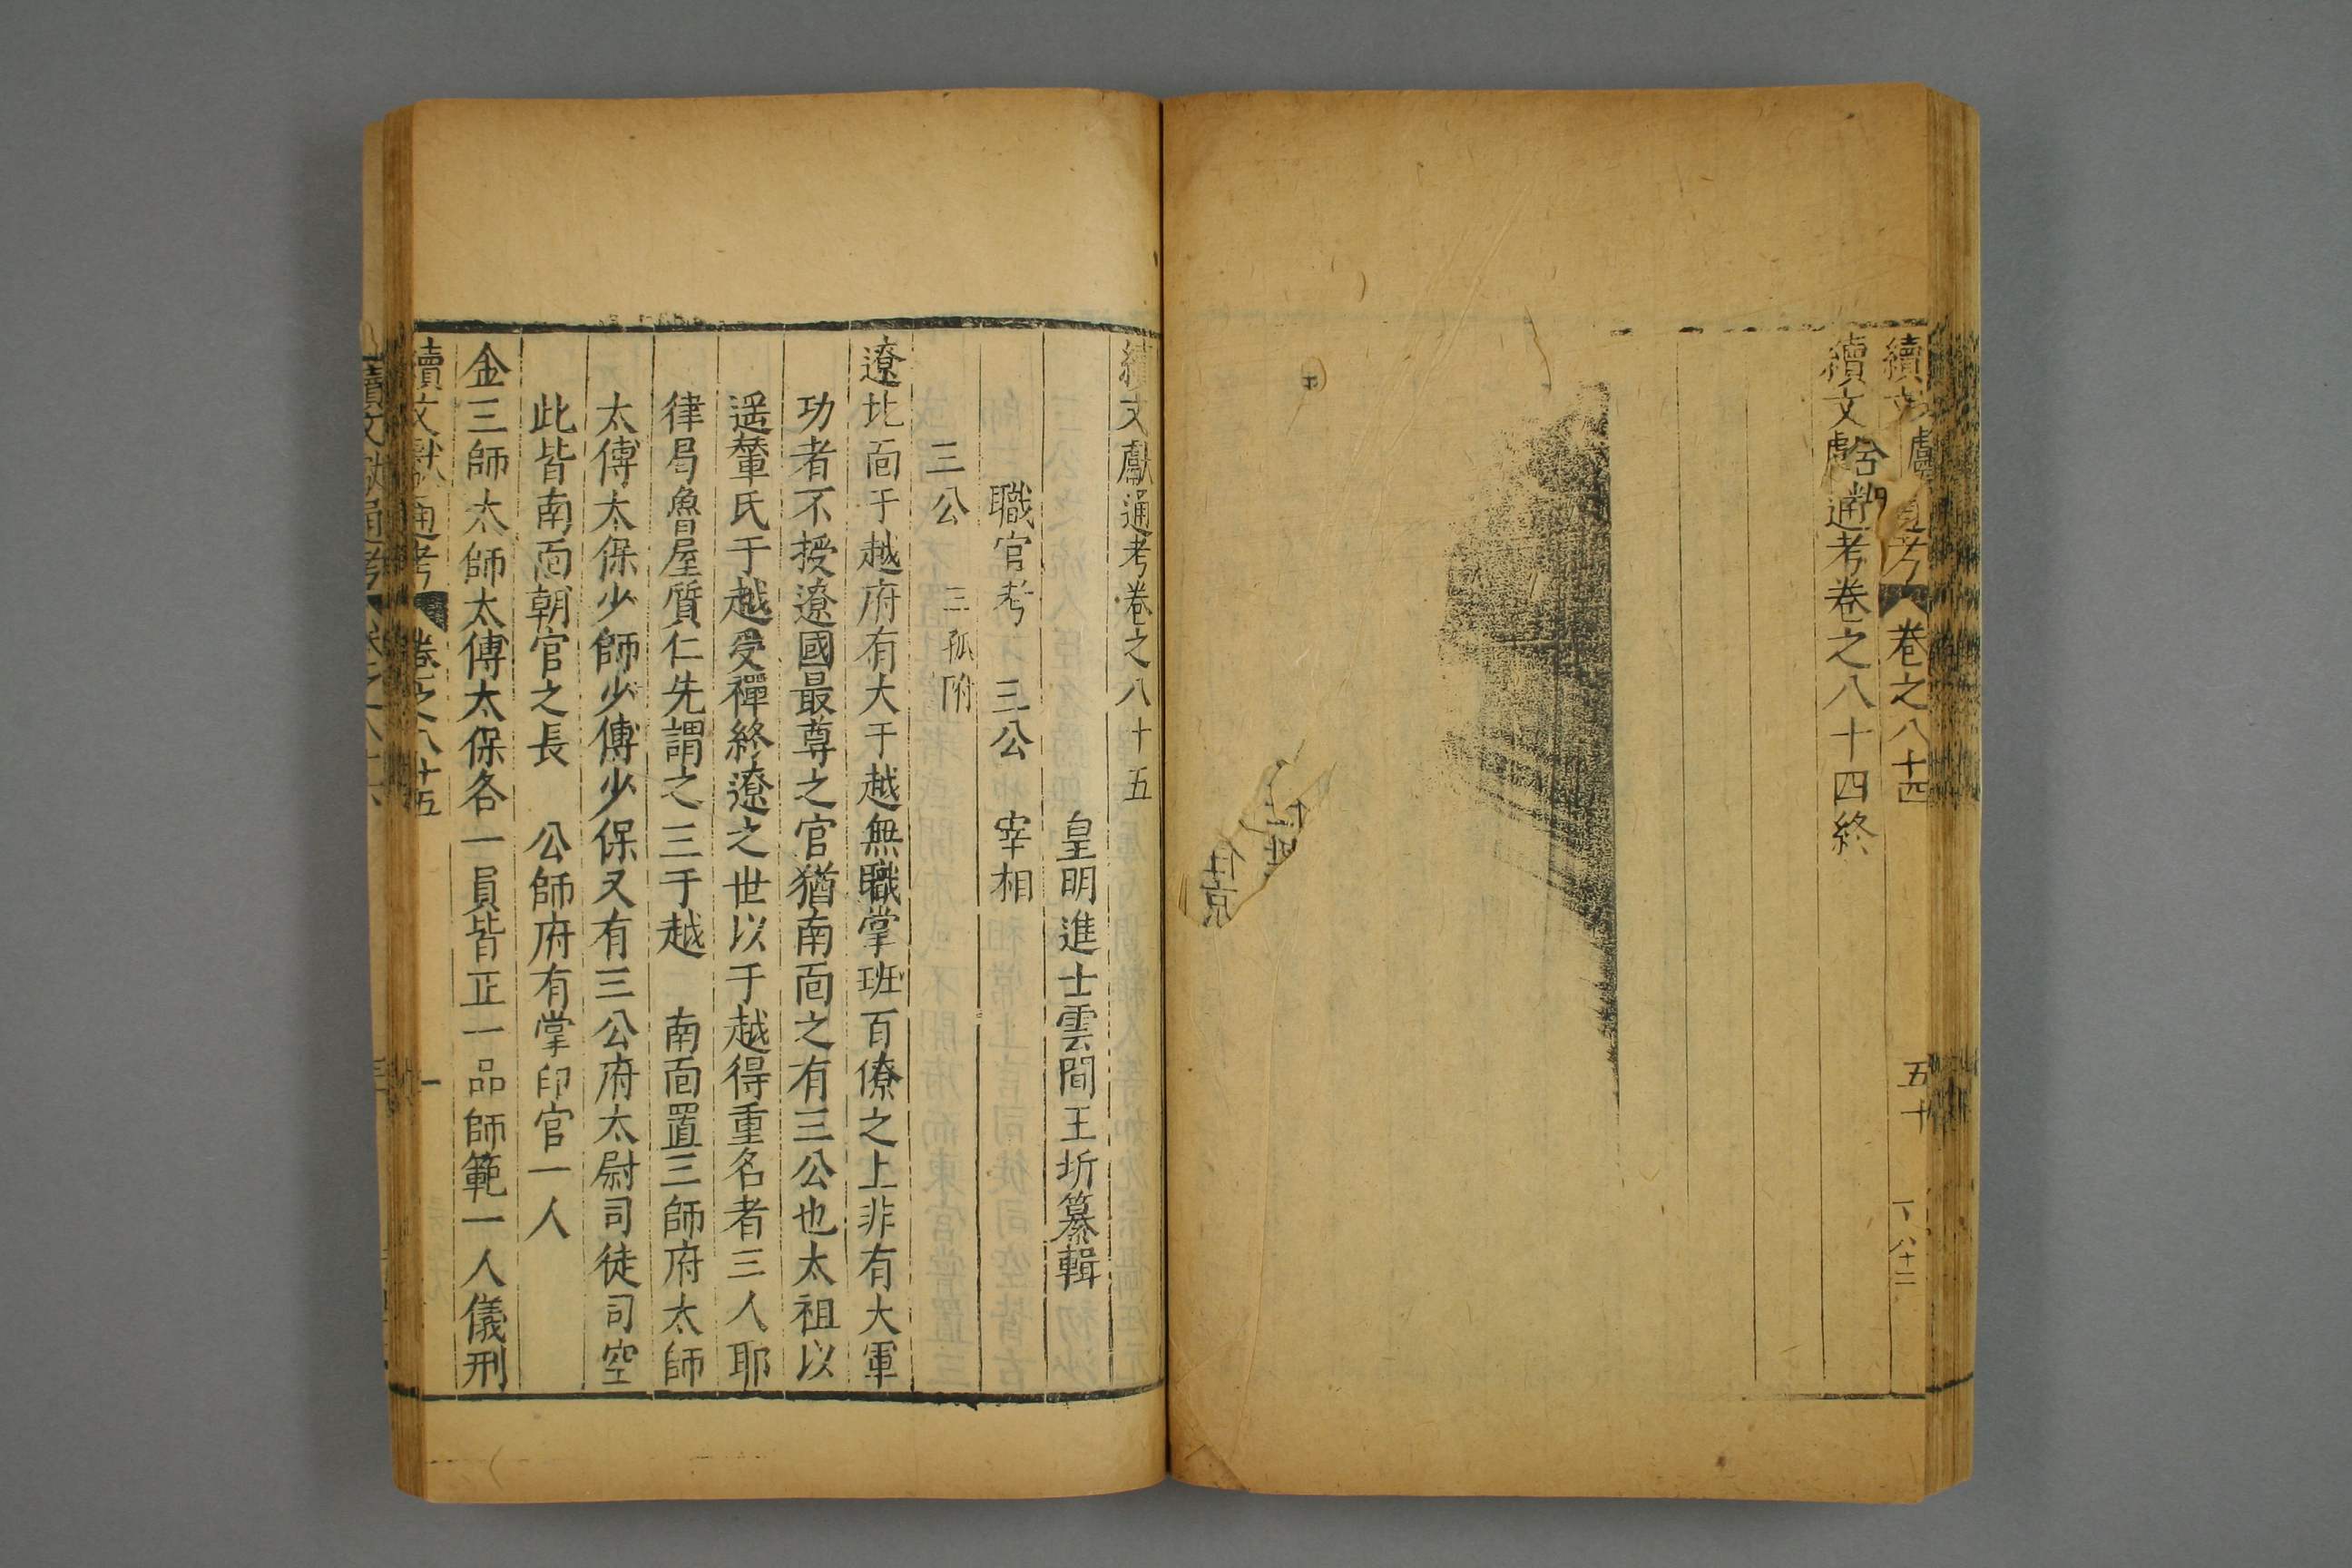 續文獻通考卷之八十四終
卷之八十四
五十
續文獻通考卷之八十五
皇明進士雲間王圻纂輯
職官考 三公 宰相
三公 三孤附
遼北面于越府有大于越無職掌班百僚之上非有大軍
功者不授遼國最尊之官猶南面之有三公也太祖以
遥輦氏于越受禪終遼之世以于越得重名者三人耶
律曷魯屋質仁先謂之三于越 南面置三師府太師
太傅太保少師少傅少保又有三公府太尉司徒司空
此皆南面朝官之長 公師府有掌印官一人
金三師太師太傅太保各一員皆正一品師範一人儀刑
續文獻通考 卷之八十五 一